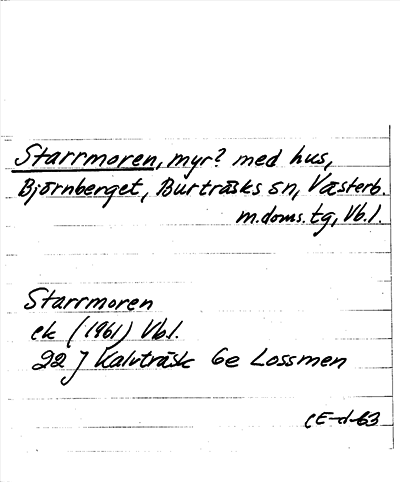 Starrmoren, myr? med hus,
Björnberget, Burträsks sn, Västerb.
m.doms.tg, Vb.l.
Starrmoren
ek (1961) Vb.l.
22 J Kalvträsk 6e Lossmen
CE-d-63